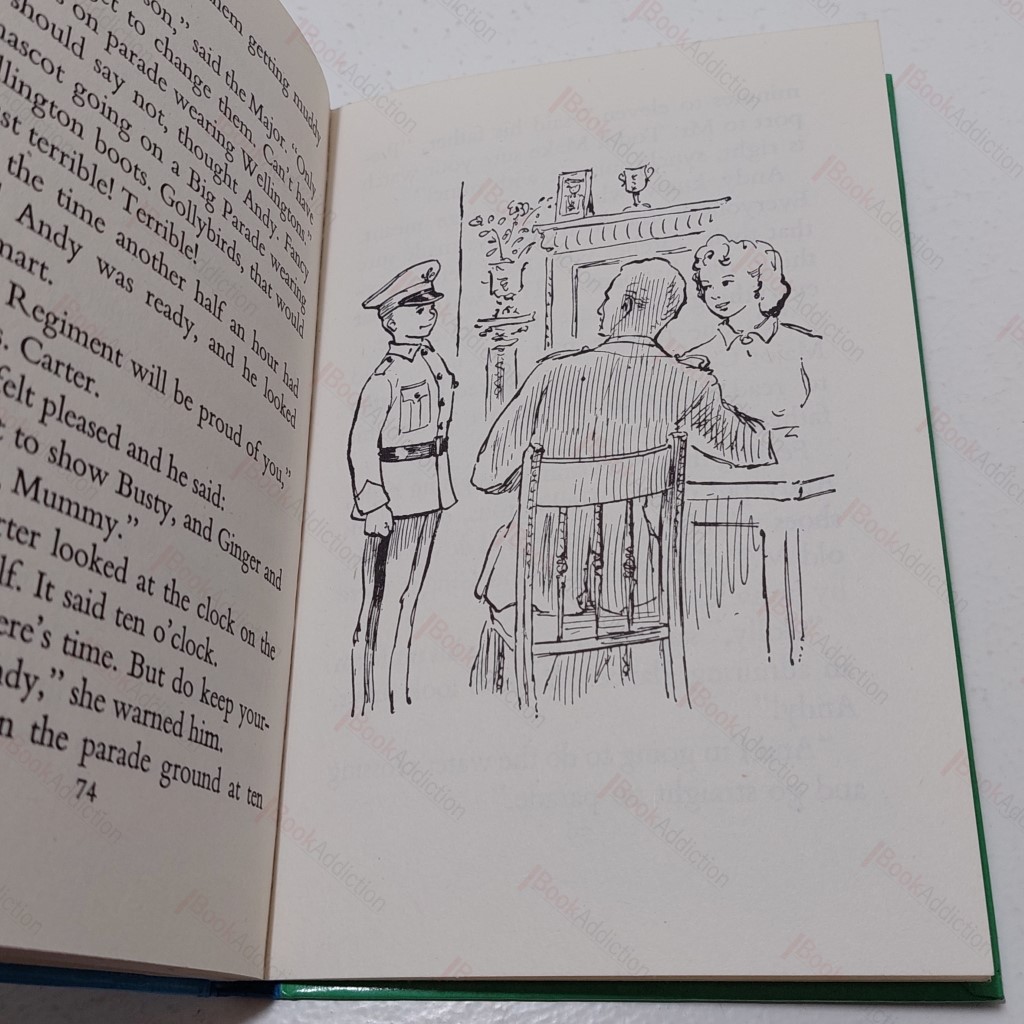 hem getting muddy
son," said the Major. "Only
get to change them. Can't have
s on parade wearing Wellingtons."
should say not, thought Andy. Fancy
mascot going on a Big Parade wearing
llington boots. Gollybirds, that would
st terrible! Terrible!
the time another half an hour had
Andy was ready, and he looked
mart.
Regiment will be proud of you,"
s. Carter.
felt pleased and he said:
t to show Busty, and Ginger and
, Mummy."
rter looked at the clock on the
lf. It said ten o'clock.
ere's time. But do keep your-
ndy," she warned him.
n the parade ground at ten
74
BookAddiction